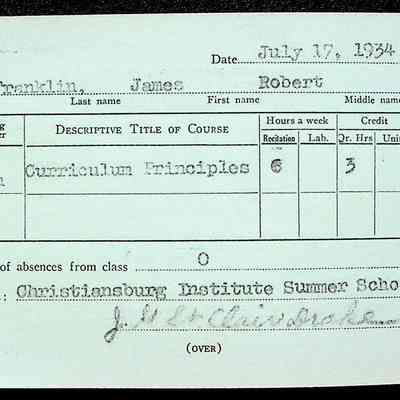 Date July 17, 1934
Franklin, James Robert
Last name First name Middle name
Descriptive Title of Course Hours a week Credit
Recitation Lab. Qr. Hrs Uni
Curriculum Principles 6 3
of absences from class 0
: Christiansburg Institute Summer Scho
J. G. St. Clair Drake
(OVER)